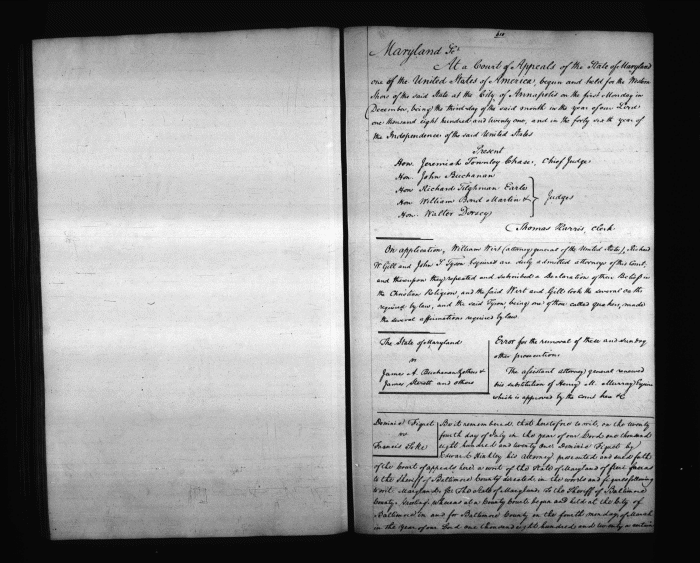 Maryland Sc.
At a Court of Appeals of the State of Maryland
one of the United States of America, begun and held for the Western
Shore of the said State at the City of Annapolis on the first Monday in
December, being the third day of the said month in the year of our Lord
one thousand eight hundred and twenty one, and in the forty sixth year of
the Independence of the said United States
Present
Hon. Jeremiah Townley Chase, Chief Judge
Hon. John Buchanan
Hon Richard Tilghman Earle
Hon William Bond Martin &
Judges
Hon. Walter Dorsey
Thomas Harris, Clerk
On application, William Wirt (attorney general of the United States), Richard
W Gill and John S Tyson Esquires are duly admitted attorneys of this Court,
and thereupon they repeated and subscribed a Declaration of their Belief in
the Christian Religion, and the said Wirt and Gill took the several oaths
required by law, and the said Tyson, being one of those called quakers, made
the several affirmations required by law
The State of Maryland
vs
James A. Buchanan &
James Sterett and others
Error for the removal of these and sunday
other prosecutions
The assistant attorney general renewed
his substitution of Henry M. Murray Esquire
which is approved by the court here &c
Francis
Be it remembered that heretofore to wit, on the twenty
fourth day of July in the year of our Lord one thousand
eight hundred and twenty one by
Edward Hinkley his attorney presented
of the court of appeals here a writ of the State of Maryland of fieri facias
to the Sheriff of Baltimore County directed, in the words and figures following
to wit. Maryland Sc. The State of Maryland, To the Sheriff of Baltimore
County, Greeting. Whereas at a County Court begun and held at the City of
Baltimore in and for Baltimore County on the fourth monday of March
in the year of our Lord one thousand eight hundred and twenty